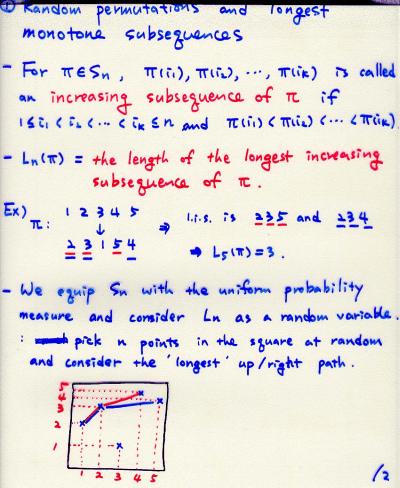 ① Random permutations and longest
monotone subsequences
- For π∈Sn, π(i1), π(i2), ..., π(ik) is called
an increasing subsequence of π if
1≤i1<i2<...<ik≤n and π(i1)<π(i2)<...<π(ik).
- Ln(π) = the length of the longest increasing
subsequence of π.
Ex) π: 1 2 3 4 5 ⇒ l.i.s. is 2 3 5 and 2 3 4
↓
2 3 1 5 4 ⇒ L5(π)=3.
- We equip Sn with the uniform probability
measure and consider Ln as a random variable.
: pick n points in the square at random
and consider the 'longest' up/right path.
5
4
3
2
1
1 2 3 4 5
/2